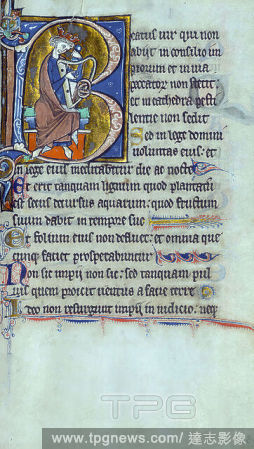 Beatus uir qui non
abijt in consilio im
piorum et in uia
peccatorum non stetit:
et in cathedra pesti
lentie non sedit
Sed in lege domini
uoluntas eius: et
in lege eius meditabitur die ac nocte
Et erit tanquam lignum quod plantatum
est secus decursus aquarum: quod fructum
suum dabit in tempore suo
Et folium eius non defluet: et omnia que
cunque faciet prosperabuntur
Non sic impij non sic: sed tanquam pul
uis quem proicit uentus a facie terre
Ideo non resurgunt impij in iudicio: neque
TPG
www.tpgnews.com/達志影像